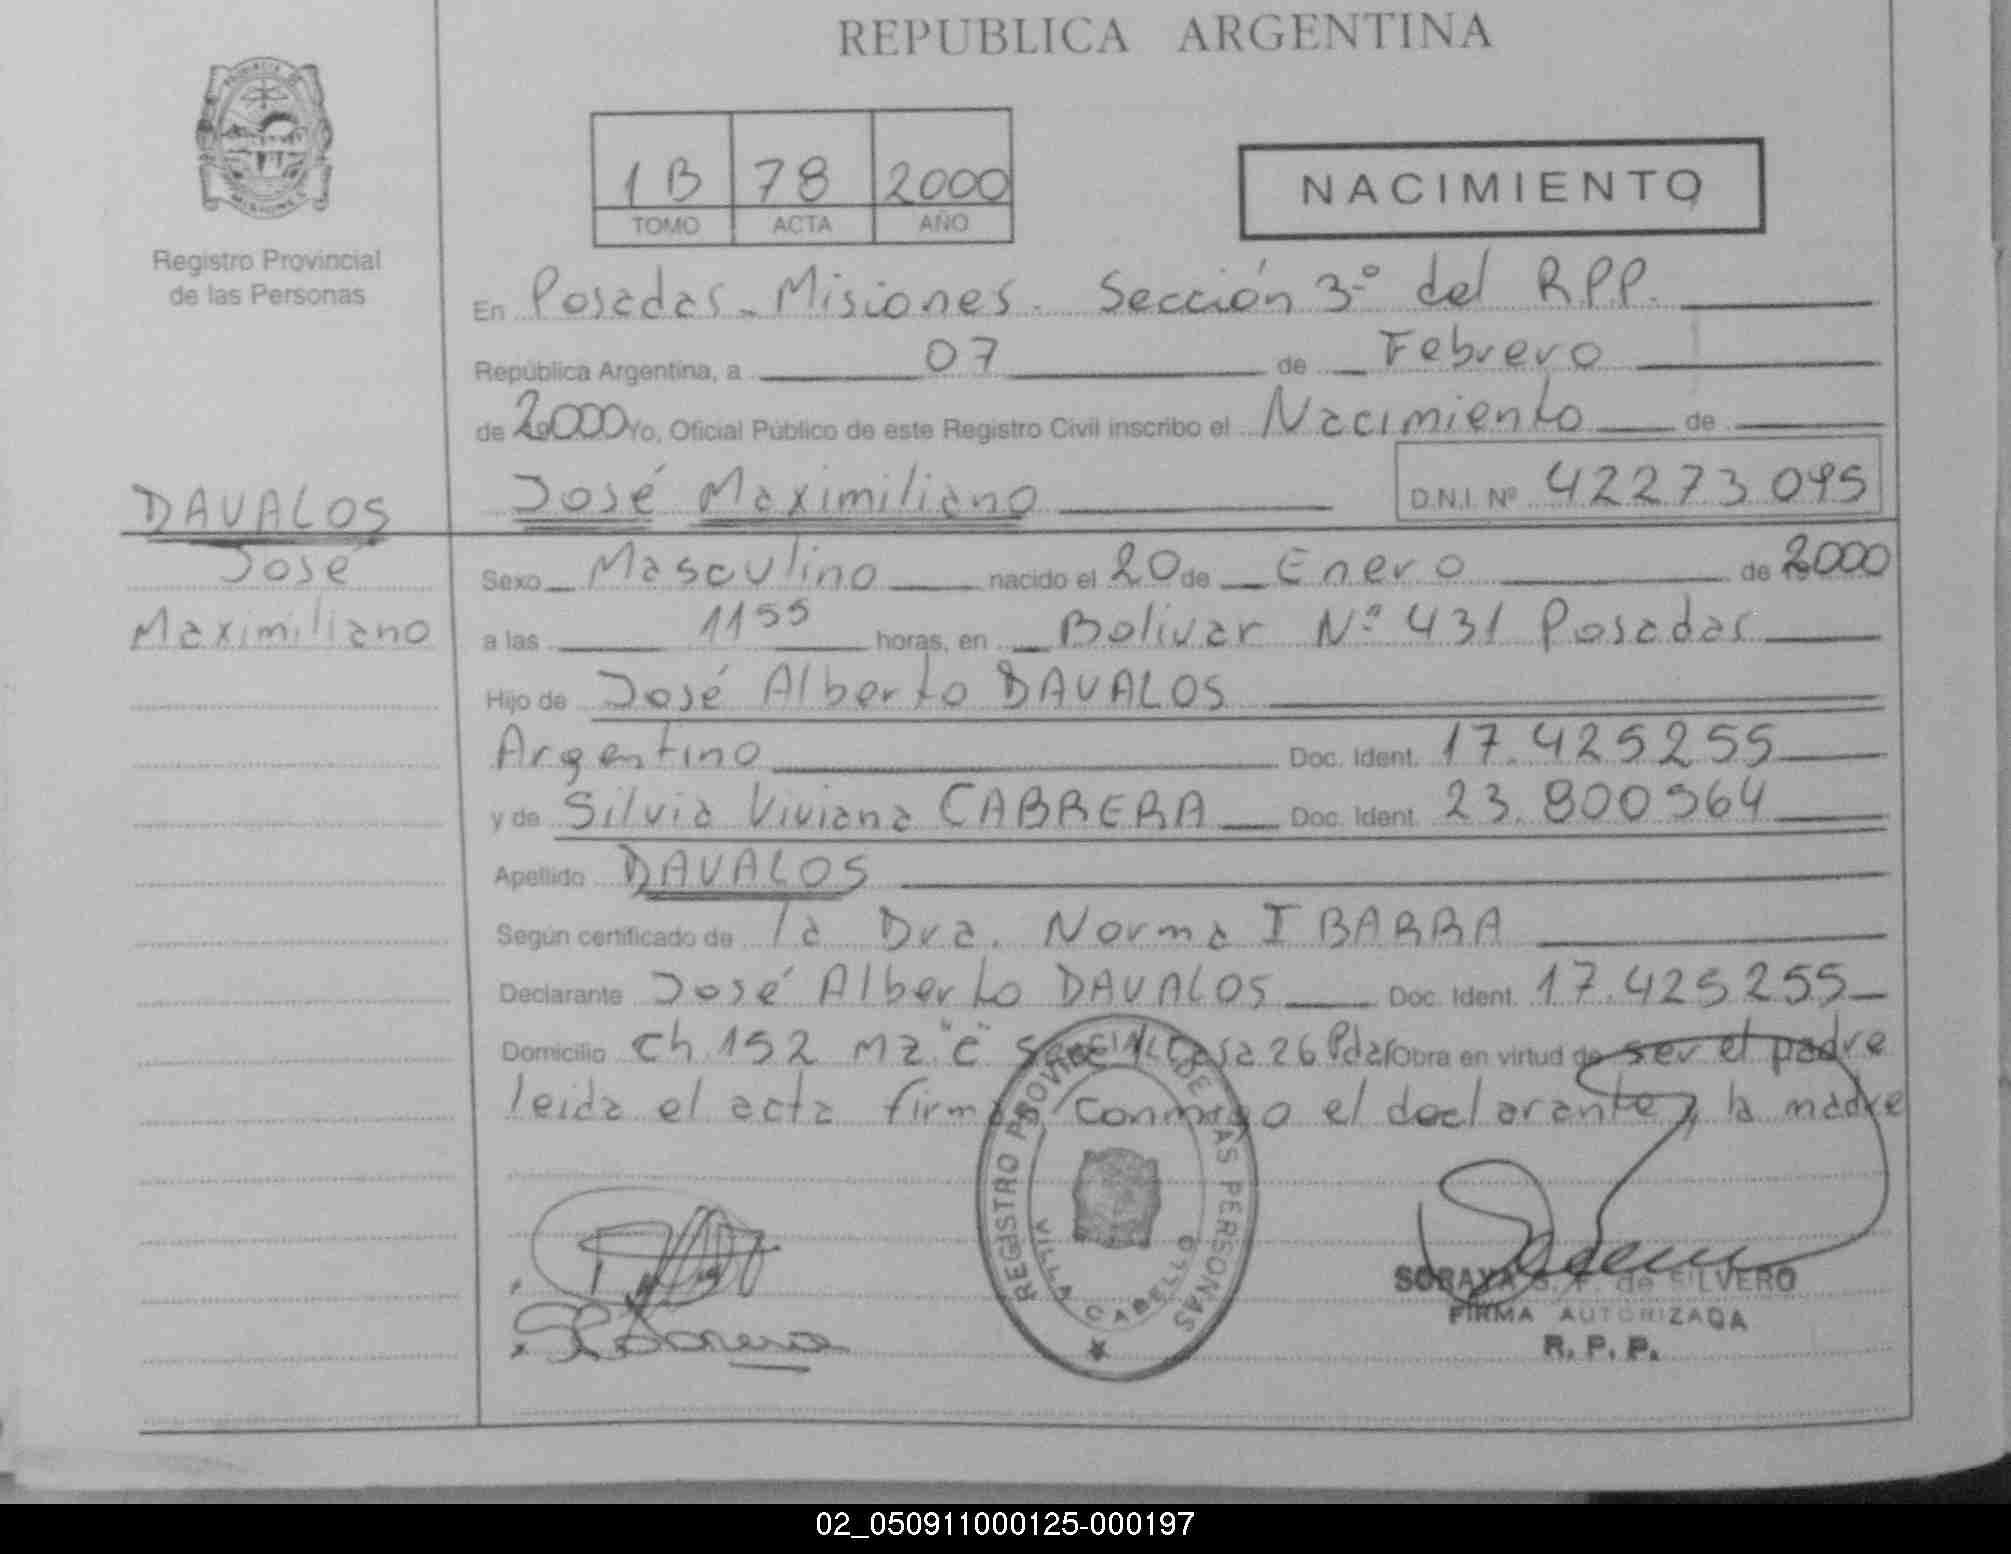 REPUBLICA ARGENTINA
1B 78 2000
TOMO ACTA AÑO
NACIMIENTO
Registro Provincial
de las Personas
En Posadas - Misiones. Sección 3º del R.P.P.
República Argentina, a 07 de Febrero
de 2000 Yo, Oficial Público de este Registro Civil inscribo el Nacimiento de
José Maximiliano D.N.I. Nº 42273095
DAVALOS
José
Maximiliano
Sexo Masculino nacido el 20 de Enero de 2000
a las 1155 horas, en Bolivar Nº 431 Posadas
Hijo de José Alberto DAVALOS
Argentino Doc. Ident. 17.425255
y de Silvia Viviana CABRERA Doc. Ident. 23.800564
Apellido DAVALOS
Según certificado de la Dra. Norma IBARRA
Declarante José Alberto DAVALOS Doc. Ident. 17.425255
Domicilio Ch. 152 Mz "C" Casa 26 Pdas Obra en virtud de ser el padre
leida el acta firman conmigo el declarante y la madre
REGISTRO PROVINCIAL DE LAS PERSONAS
VILLA CABELLO
SORAYA S. F. de SILVERO
FIRMA AUTORIZADA
R. P. P.
02_050911000125-000197